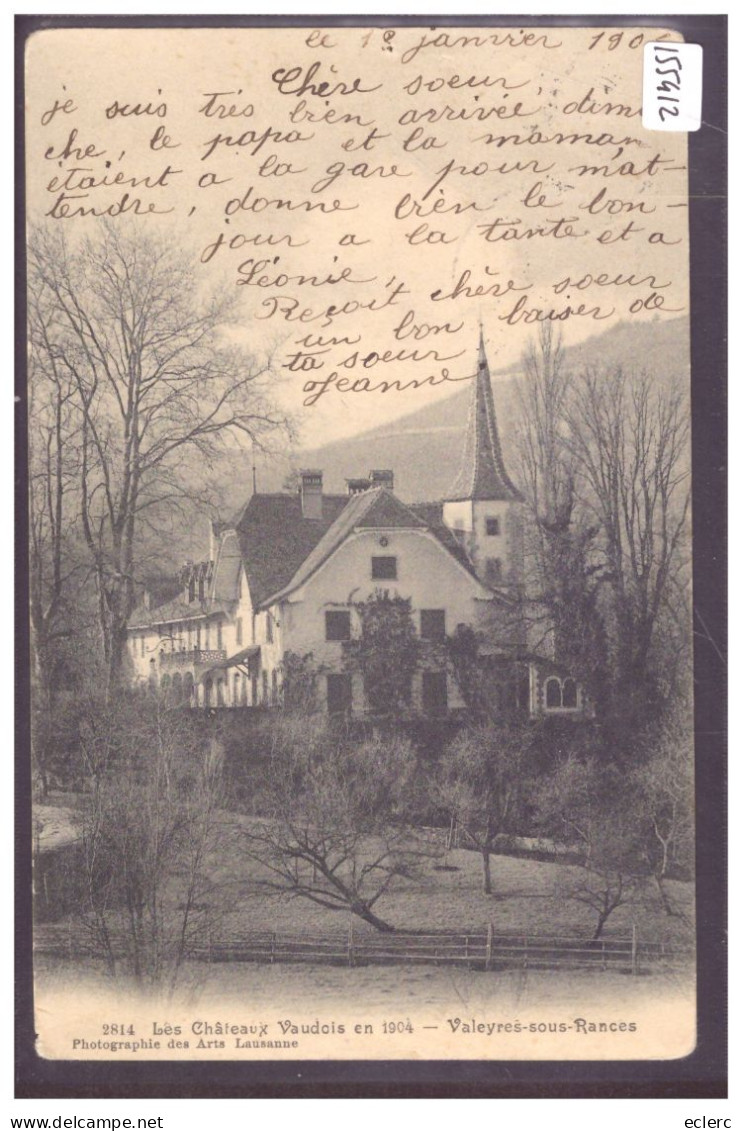 le 1e janvier 190
Chère soeur,
je suis très bien arrivée dima
che, le papa et la maman
étaient a la gare pour m'at-
tendre, donne bien le bon-
jour a la tante et a
Léonie,
Reçoit chère soeur
un bon baiser de
ta soeur
Jeanne
155412
2814 Les Châteaux Vaudois en 1904 — Valeyres-sous-Rances
Photographie des Arts Lausanne
eclerc